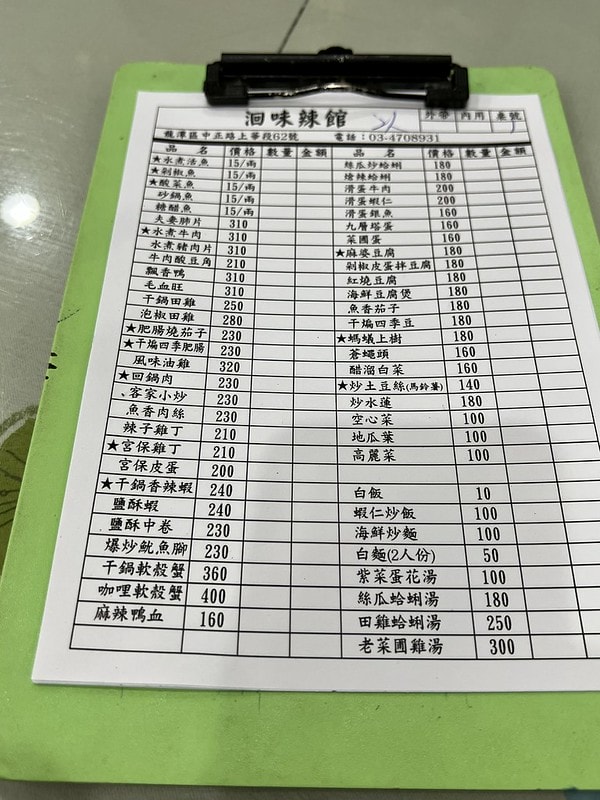 洄味辣館
外帶 內用 桌號
龍潭區中正路上華段62號 電話：03-4708931
品 名 價格 數量 金額 品 名 價格 數量 金額
★水煮活魚 15/兩 絲瓜炒蛤蜊 180
★剁椒魚 15/兩 熗辣蛤蜊 180
★酸菜魚 15/兩 滑蛋牛肉 200
砂鍋魚 15/兩 滑蛋蝦仁 200
糖醋魚 15/兩 滑蛋銀魚 160
夫妻肺片 310 九層塔蛋 160
★水煮牛肉 310 菜圃蛋 160
水煮豬肉片 310 ★麻婆豆腐 180
牛肉酸豆角 210 剁椒皮蛋拌豆腐 180
飄香鴨 310 紅燒豆腐 180
毛血旺 310 海鮮豆腐煲 180
干鍋田雞 250 魚香茄子 180
泡椒田雞 280 干煸四季豆 180
★肥腸燒茄子 230 ★螞蟻上樹 180
★干煸四季肥腸 230 蒼蠅頭 160
風味油雞 320 醋溜白菜 160
★回鍋肉 230 ★炒土豆絲(馬鈴薯) 140
客家小炒 230 炒水蓮 180
魚香肉絲 230 空心菜 100
辣子雞丁 210 地瓜葉 100
★宮保雞丁 210 高麗菜 100
宮保皮蛋 200
★干鍋香辣蝦 240 白飯 10
鹽酥蝦 240 蝦仁炒飯 100
鹽酥中卷 230 海鮮炒麵 100
爆炒魷魚腳 230 白麵(2人份) 50
干鍋軟殼蟹 360 紫菜蛋花湯 100
咖哩軟殼蟹 400 絲瓜蛤蜊湯 180
麻辣鴨血 160 田雞蛤蜊湯 250
老菜圃雞湯 300